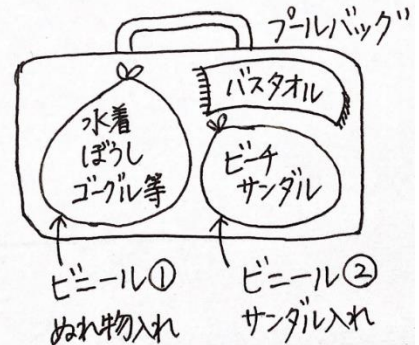 プールバッグ
バスタオル
水着
ぼうし
ゴーグル等
ビーチ
サンダル
ビニール①
ぬれ物入れ
ビニール②
サンダル入れ